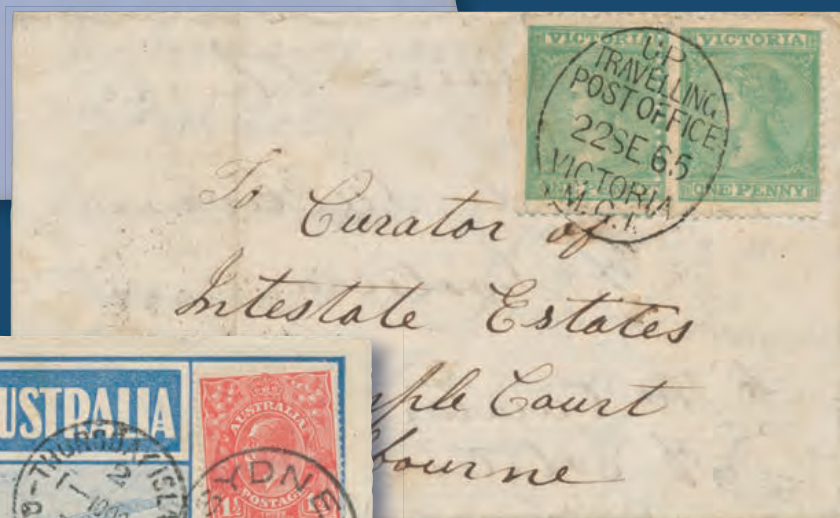 VICTORIA VICTORIA
ONE PENNY
UP
TRAVELLING
POST OFFICE
22 SE 65
VICTORIA
M.G.1.
To Curator of
Intestate Estates
ple Court
bourne
USTRALIA
AUSTRALIA
POSTAGE
THURSDAY ISL
2
SYDNE